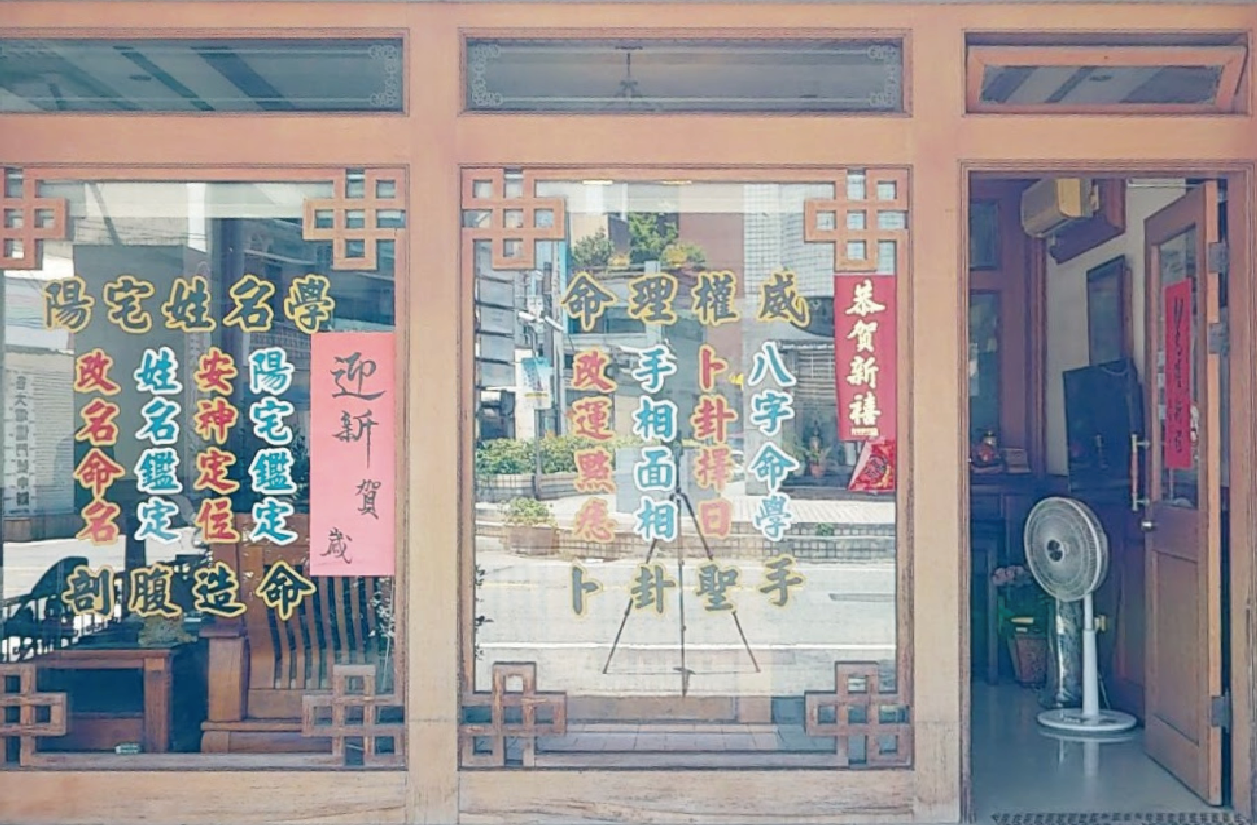 陽宅姓名學
陽宅鑑定
安神定位
姓名鑑定
改名命名
剖腹造命
迎新賀歲
命理權威
八字命學
卜卦擇日
手相面相
改運點痣
卜卦聖手
恭賀新禧